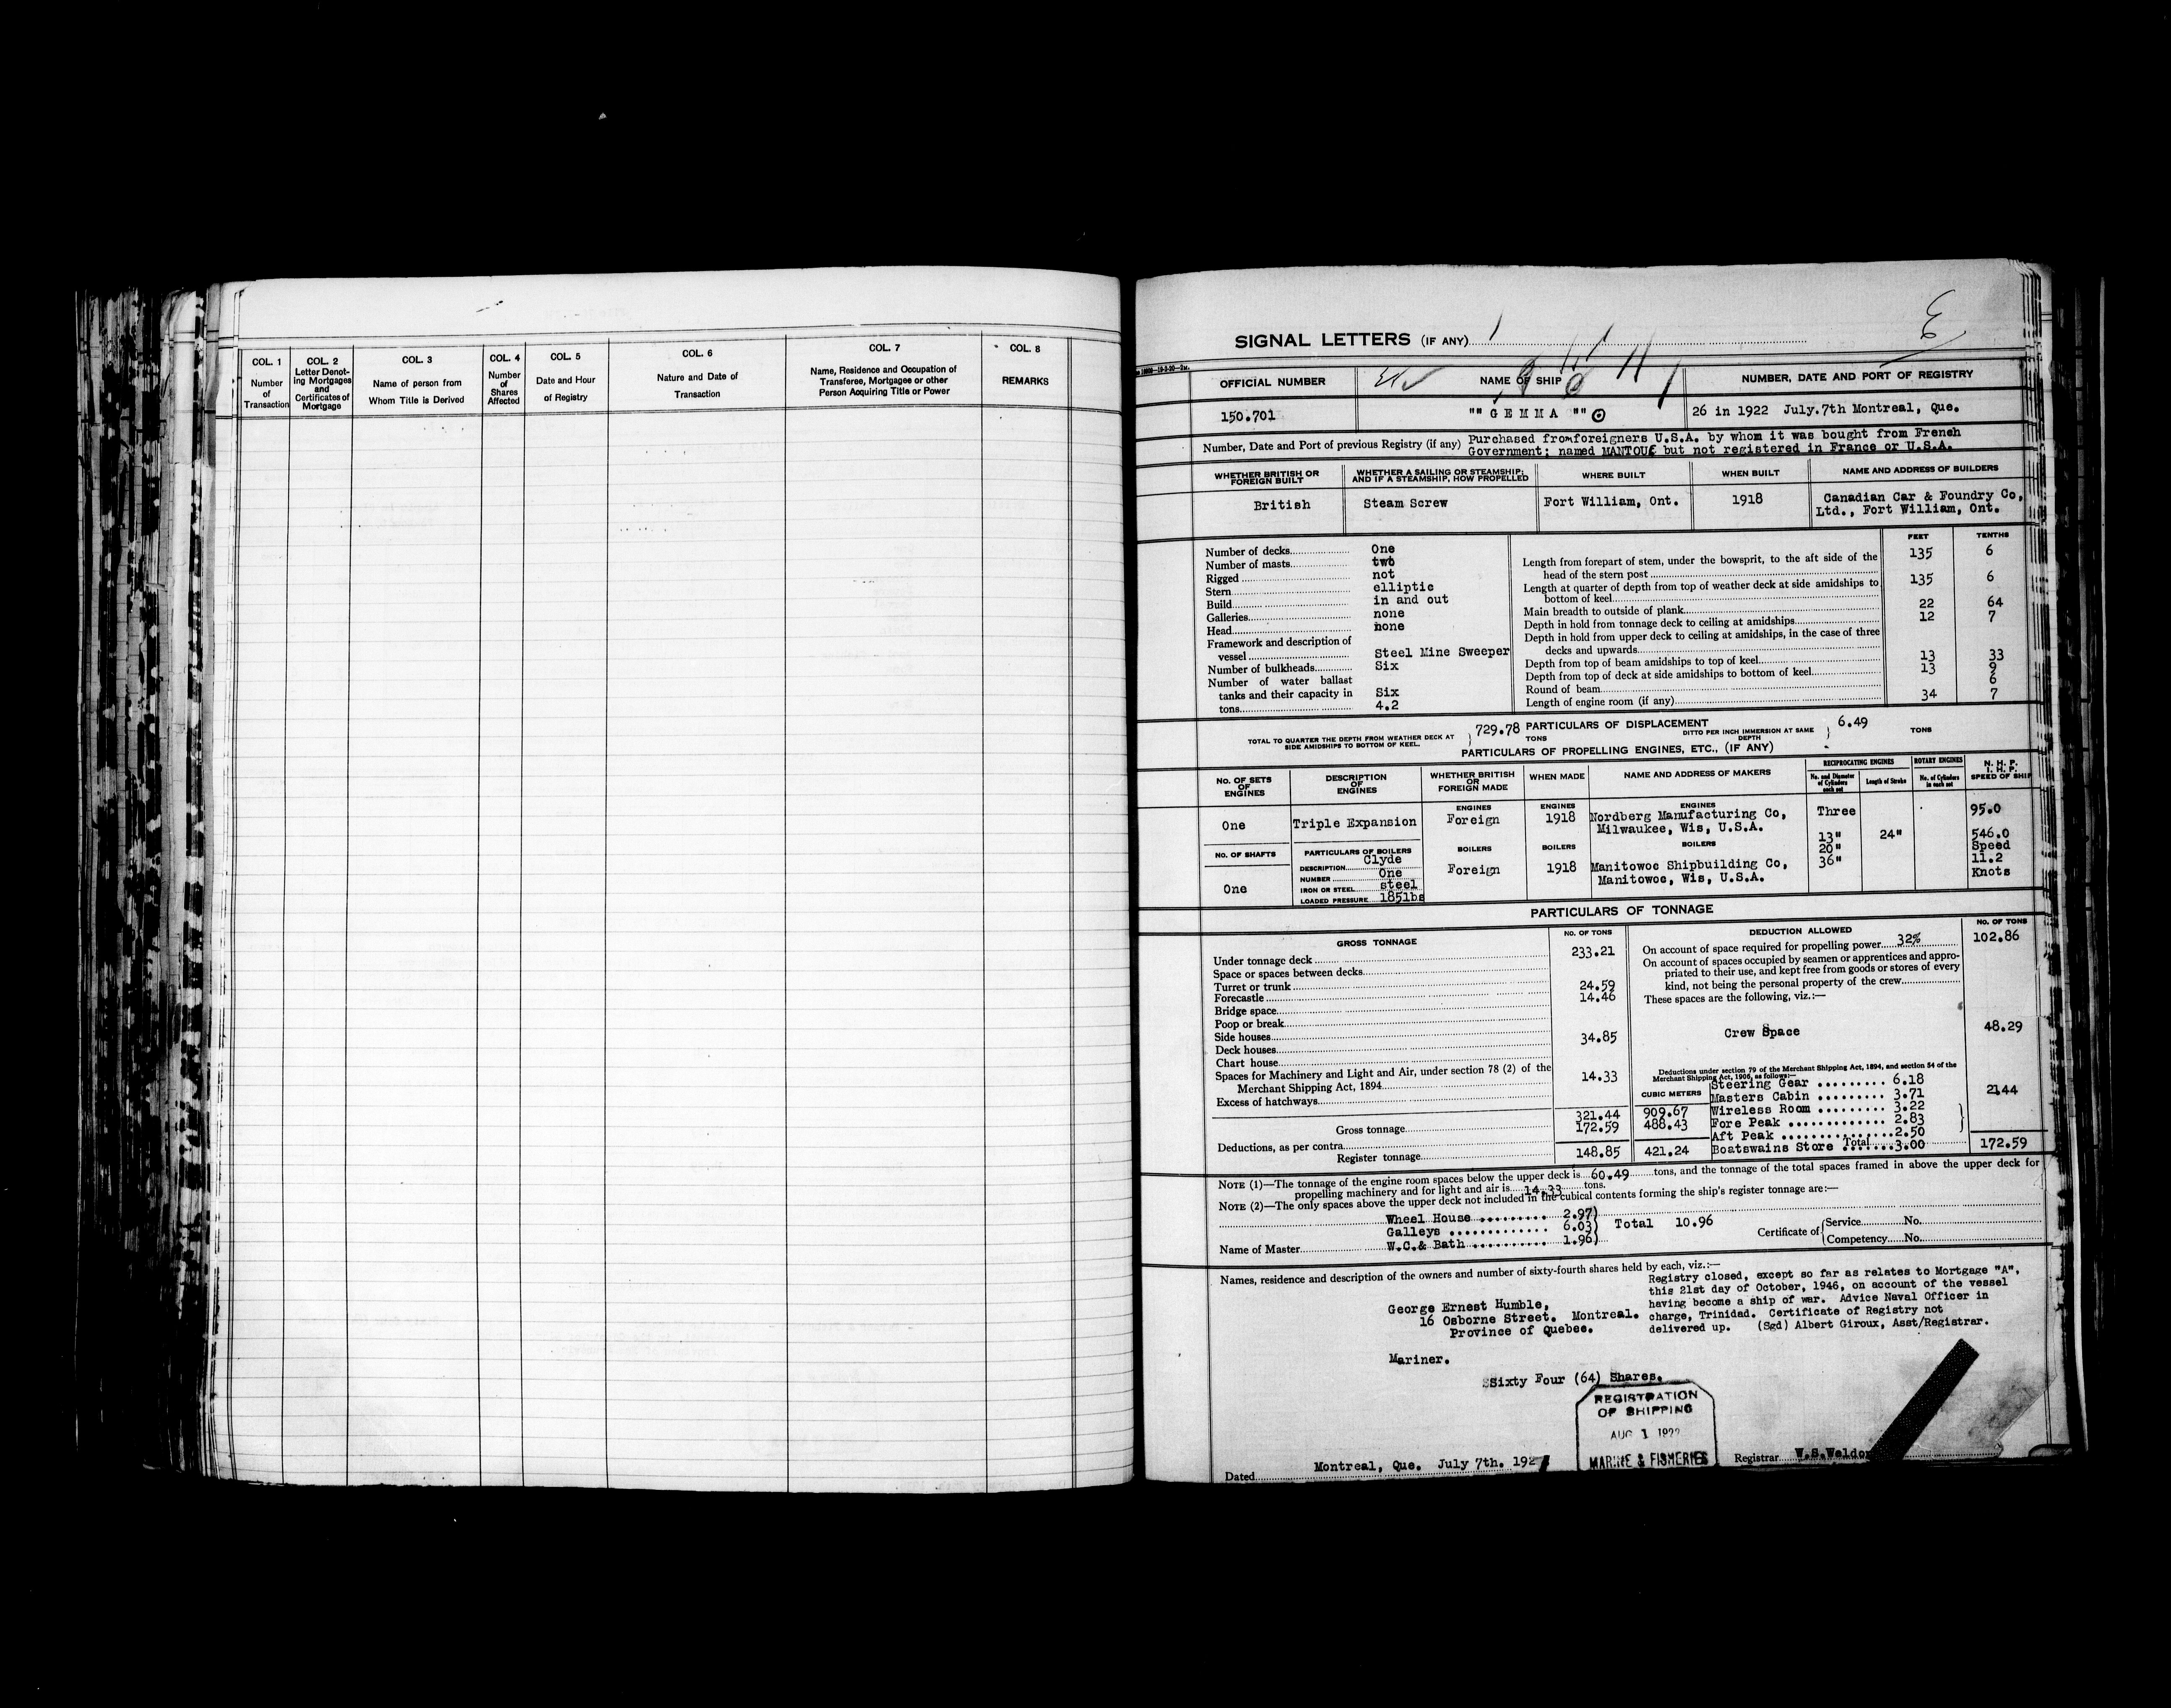 COL. 1
Number
of
Transaction
COL. 2
Letter Denot-
ing Mortgages
and
Certificates of
Mortgage
COL. 3
Name of person from
Whom Title is Derived
COL. 4
Number
of
Shares
Affected
COL. 5
Date and Hour
of Registry
COL. 6
Nature and Date of
Transaction
COL. 7
Name, Residence and Occupation of
Transferee, Mortgagee or other
Person Acquiring Title or Power
COL. 8
REMARKS
SIGNAL LETTERS (IF ANY)
OFFICIAL NUMBER
NAME OF SHIP
NUMBER, DATE AND PORT OF REGISTRY
150.701
"" G E M M A ""
26 in 1922 July.7th Montreal, Que.
Number, Date and Port of previous Registry (if any) Purchased fromforeigners U.S.A. by whom it was bought from French
Government; named MANTOUE but not registered in France or U.S.A.
WHETHER BRITISH OR
FOREIGN BUILT
WHETHER A SAILING OR STEAMSHIP;
AND IF A STEAMSHIP, HOW PROPELLED
WHERE BUILT
WHEN BUILT
NAME AND ADDRESS OF BUILDERS
British
Steam Screw
Fort William, Ont.
1918
Canadian Car & Foundry Co,
Ltd., Fort William, Ont.
Number of decks One
Number of masts two
Rigged not
Stern elliptic
Build in and out
Galleries none
Head none
Framework and description of
vessel Steel Mine Sweeper
Number of bulkheads Six
Number of water ballast
tanks and their capacity in Six
tons 4.2
FEET TENTHS
Length from forepart of stem, under the bowsprit, to the aft side of the
head of the stern post 135 6
Length at quarter of depth from top of weather deck at side amidships to
bottom of keel 135 6
Main breadth to outside of plank 22 64
Depth in hold from tonnage deck to ceiling at amidships 12 7
Depth in hold from upper deck to ceiling at amidships, in the case of three
decks and upwards
Depth from top of beam amidships to top of keel 13 33
Depth from top of deck at side amidships to bottom of keel 13 9
Round of beam 6
Length of engine room (if any) 34 7
PARTICULARS OF DISPLACEMENT
TOTAL TO QUARTER THE DEPTH FROM WEATHER DECK AT
SIDE AMIDSHIPS TO BOTTOM OF KEEL
729.78 TONS
DITTO PER INCH IMMERSION AT SAME
DEPTH
6.49 TONS
PARTICULARS OF PROPELLING ENGINES, ETC., (IF ANY)
NO. OF SETS
OF
ENGINES
DESCRIPTION
OF
ENGINES
WHETHER BRITISH
OR
FOREIGN MADE
WHEN MADE
NAME AND ADDRESS OF MAKERS
RECIPROCATING ENGINES
No. and Diameter
of Cylinders
each set
Length of Stroke
ROTARY ENGINES
No. of Cylinders
in each set
N. H. P.
I. H. P.
SPEED OF SHIP
One
Triple Expansion
ENGINES
Foreign
ENGINES
1918
ENGINES
Nordberg Manufacturing Co,
Milwaukee, Wis, U.S.A.
Three
13"
20"
36"
24"
95.0
546.0
Speed
11.2
Knots
NO. OF SHAFTS
One
PARTICULARS OF BOILERS
DESCRIPTION Clyde
NUMBER One
IRON OR STEEL steel
LOADED PRESSURE 185lbs
BOILERS
Foreign
BOILERS
1918
BOILERS
Manitowoc Shipbuilding Co,
Manitowoc, Wis, U.S.A.
PARTICULARS OF TONNAGE
GROSS TONNAGE
NO. OF TONS
Under tonnage deck 233.21
Space or spaces between decks
Turret or trunk 24.59
Forecastle 14.46
Bridge space
Poop or break
Side houses 34.85
Deck houses
Chart house
Spaces for Machinery and Light and Air, under section 78 (2) of the
Merchant Shipping Act, 1894 14.33
Excess of hatchways
CUBIC METERS
Gross tonnage 321.44 909.67
Deductions, as per contra 172.59 488.43
Register tonnage 148.85 421.24
DEDUCTION ALLOWED
NO. OF TONS
On account of space required for propelling power 32% 102.86
On account of spaces occupied by seamen or apprentices and appro-
priated to their use, and kept free from goods or stores of every
kind, not being the personal property of the crew
These spaces are the following, viz.:—
Crew Space 48.29
Deductions under section 79 of the Merchant Shipping Act, 1894, and section 54 of the
Merchant Shipping Act, 1906, as follows:—
Steering Gear 6.18
Masters Cabin 3.71 2144
Wireless Room 3.22
Fore Peak 2.83
Aft Peak 2.50
Boatswains Store 3.00
Total 172.59
NOTE (1)—The tonnage of the engine room spaces below the upper deck is 60.49 tons, and the tonnage of the total spaces framed in above the upper deck for
propelling machinery and for light and air is 14.33 tons.
NOTE (2)—The only spaces above the upper deck not included in the cubical contents forming the ship's register tonnage are:—
Wheel House 2.97)
Galleys 6.03) Total 10.96
W.C.& Bath 1.96)
Name of Master
Certificate of Service No.
Competency No.
Names, residence and description of the owners and number of sixty-fourth shares held by each, viz.:—
George Ernest Humble,
16 Osborne Street. Montreal.
Province of Quebec.
Mariner.
Sixty Four (64) Shares.
Registry closed, except so far as relates to Mortgage "A",
this 21st day of October, 1946, on account of the vessel
having become a ship of war. Advice Naval Officer in
charge, Trinidad. Certificate of Registry not
delivered up. (Sgd) Albert Giroux, Asst/Registrar.
REGISTRATION
OF SHIPPING
AUG 1 1922
MARINE & FISHERIES
Dated Montreal, Que. July 7th. 192
Registrar W.S.Weldon